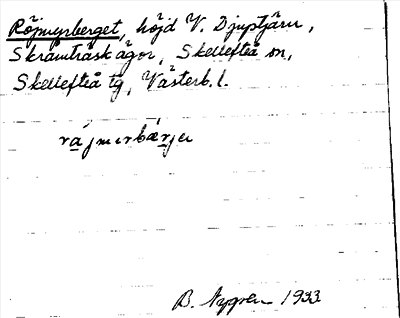 Röjmyrberget, höjd V. Djuptjärn,
Skråmträsk ägor, Skellefteå sn,
Skellefteå tg, Västerb. l.
råjmırbærjeı
B. Nygren 1933